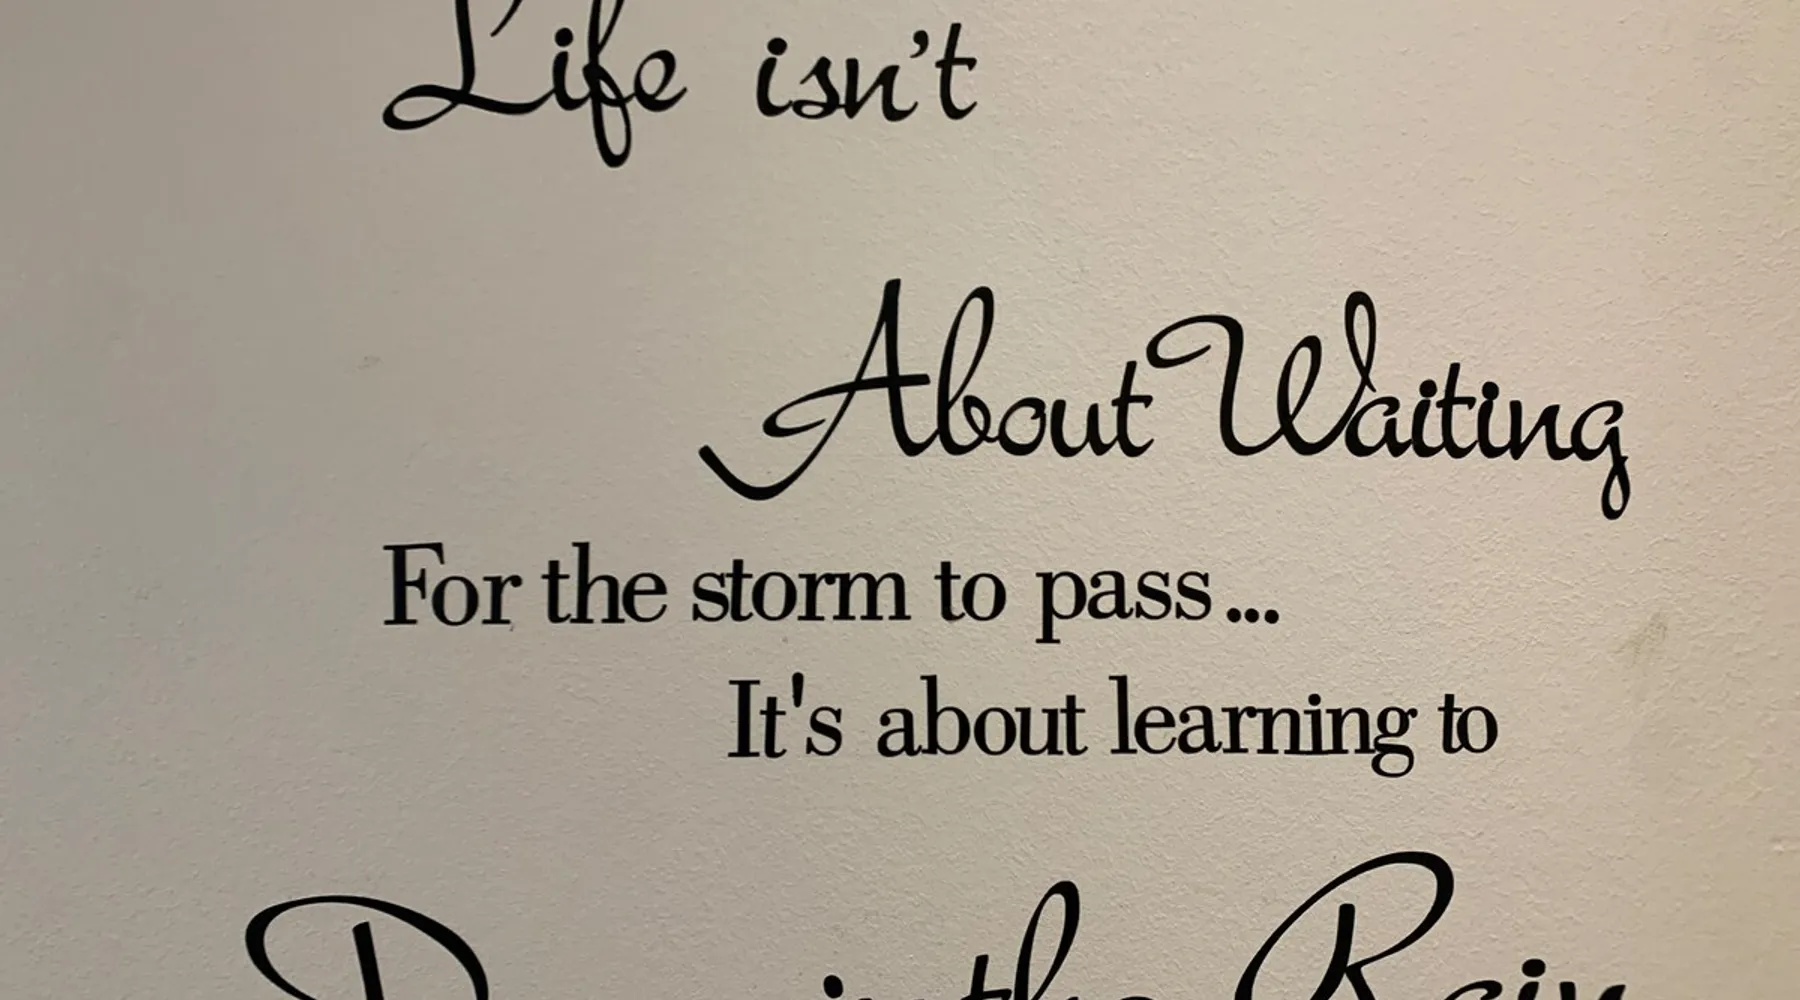 Life isn't
About Waiting
For the storm to pass...
It's about learning to
in the Rain